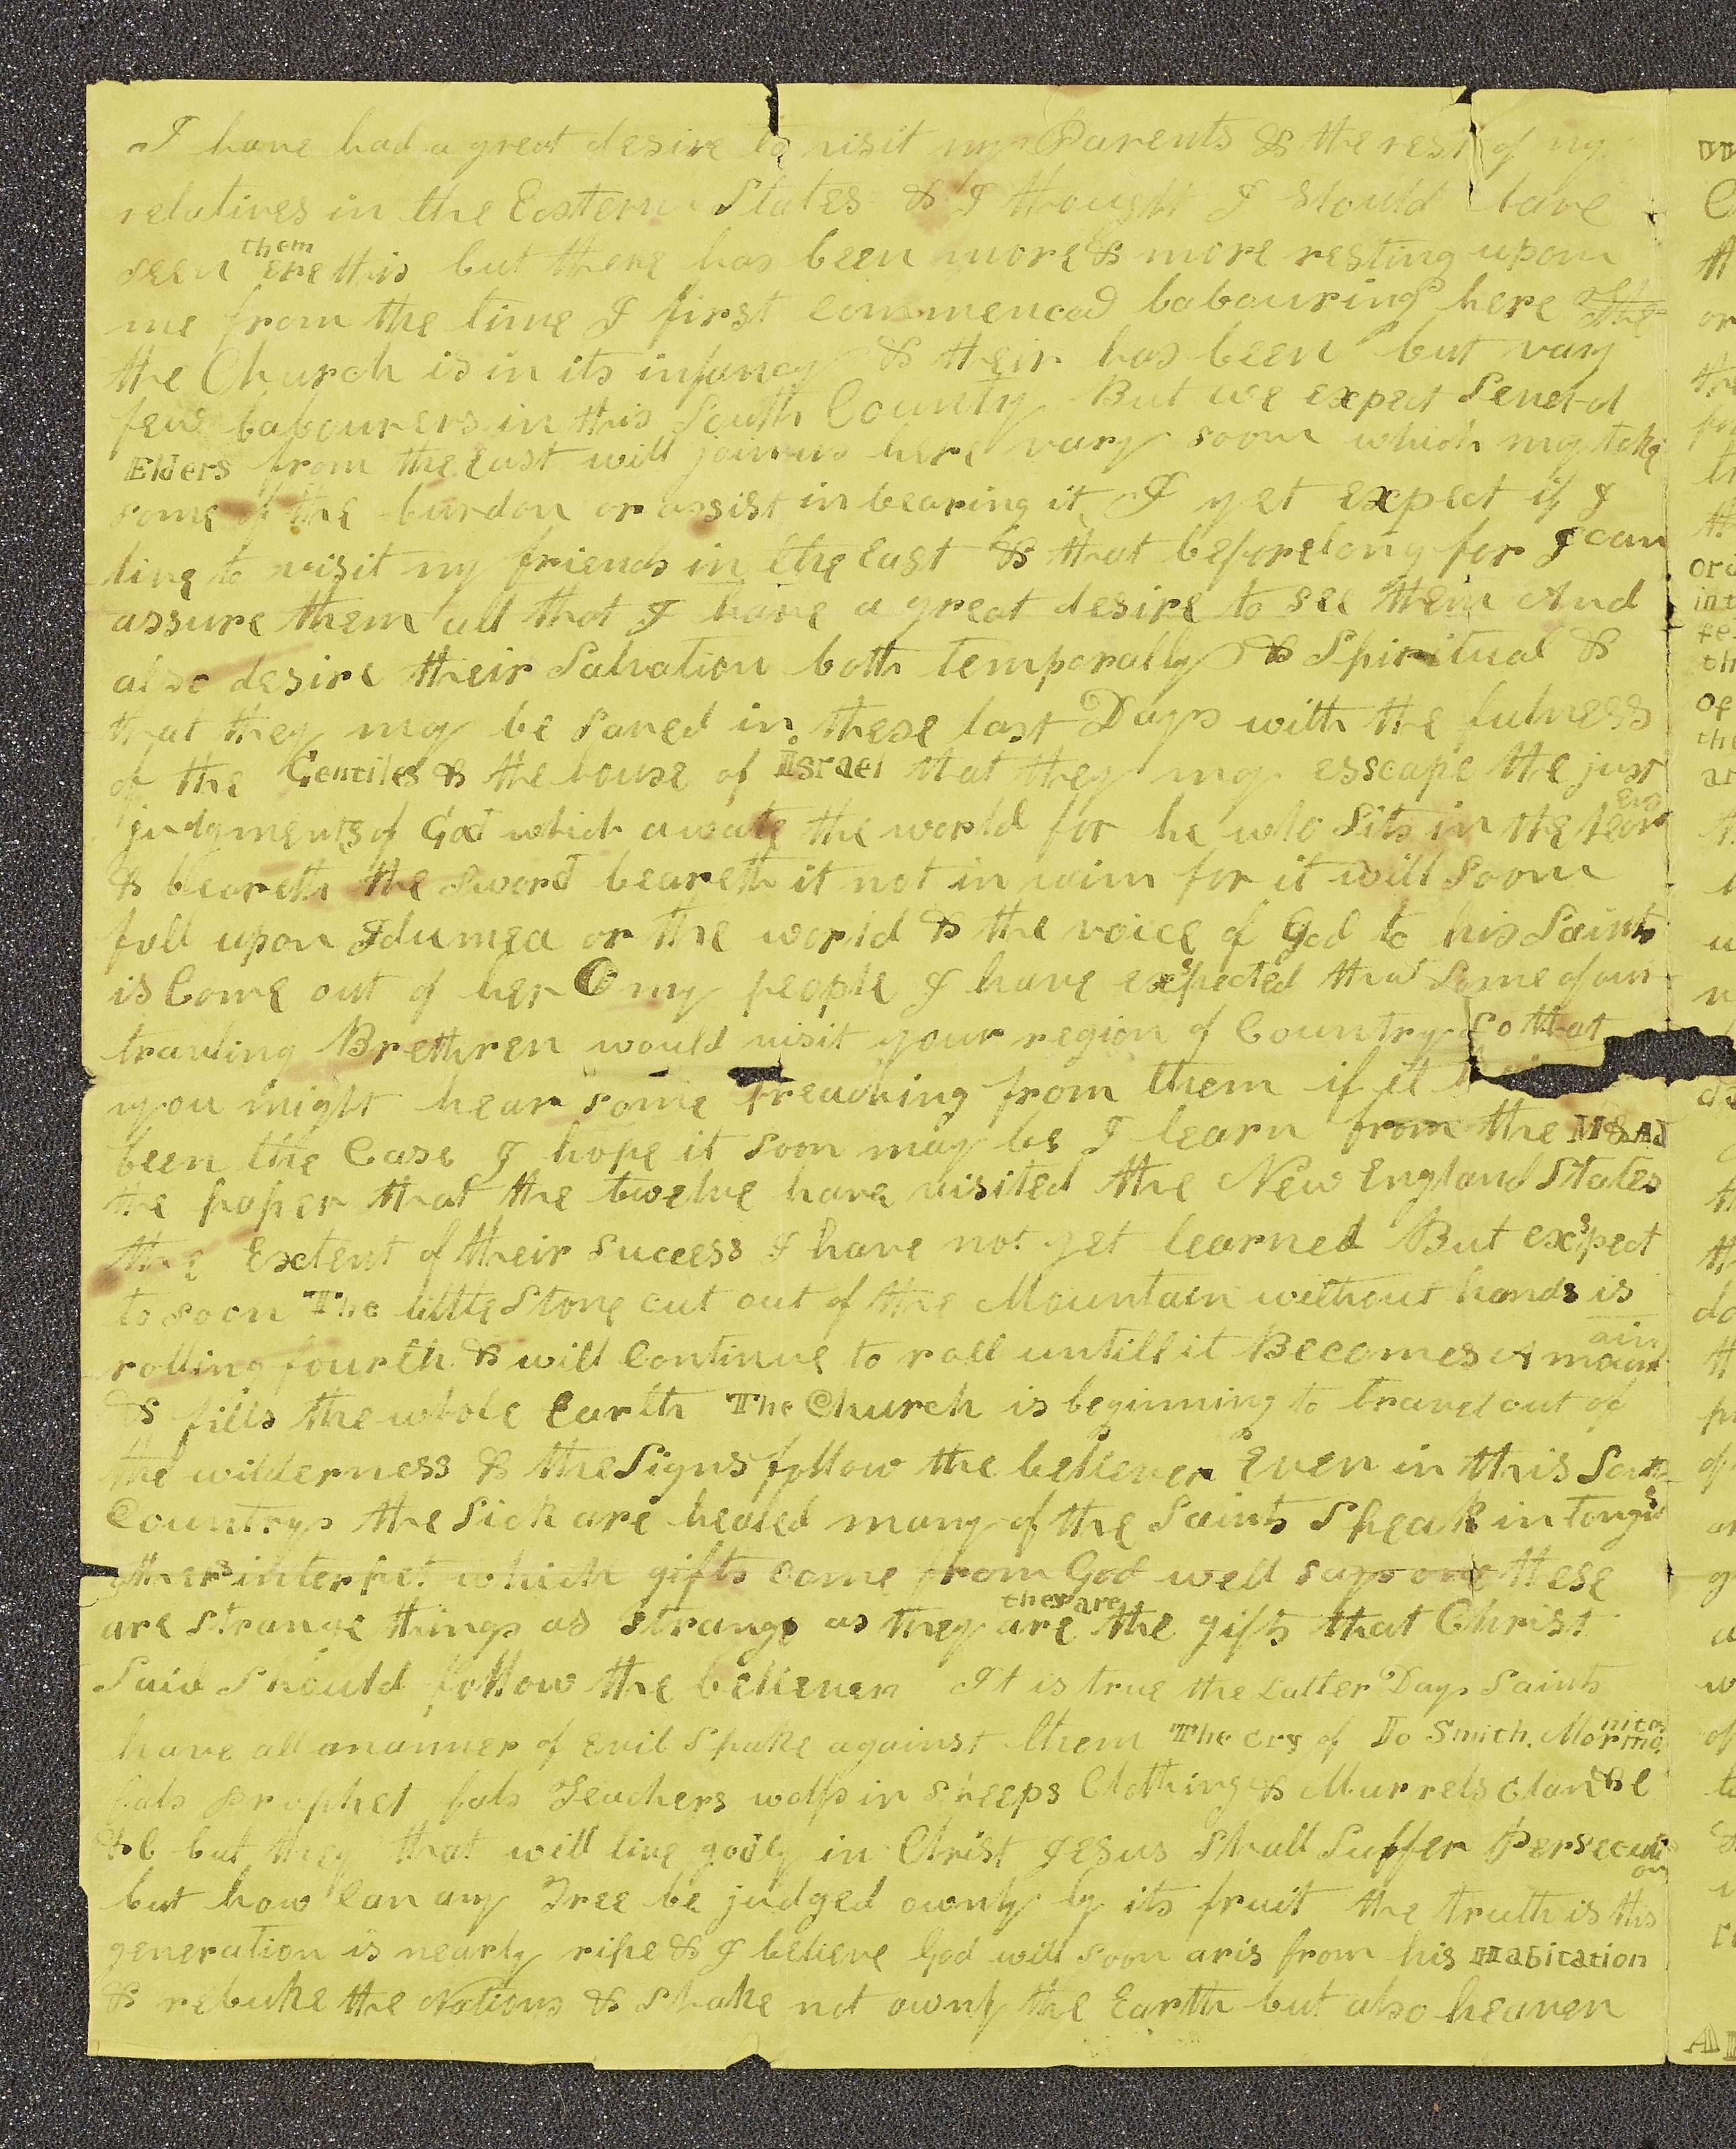 I have had a great desire to visit my Parents & the rest of my
relatives in the Eastern States & I thought I should have
seen them ere this but there has been more & more resting upon
me from the time I first commenced labouring here
the Church is in its infancy & their has been but vary
few labourers in this South County But we expect
Elders from the East will join us here vary soon which may take
some of the burdon or assist in bearing it I yet expect if I
live to visit my friends in the East & that before long for I can
assure them all that I have a great desire to see them And
also desire their Salvation both temporally & Spiritual &
that they may be saved in these last Days with the fulness
of the Gentiles & the house of Israel that they may esscape the just
judgments of God which awate the world for he who Sits in the
& beareth the sword beareth it not in vain for it will Soon
fall upon Idumea or the world & the voice of God to his Saints
is Come out of her O my people I have exspected that Some of our
travling Brethren would visit your region of Country So that
you might hear some Preaching from them if it
been the Case I hope it soon may be I learn from the M & AD
the paper that the twelve have visited the New England States
the Extent of their success I have not yet learned But exspect
to soon The little Stone cut out of the Mountain without hands is
rolling fourth & will Continue to roll untill it Becomes A mountain
& fills the whole Earth The Church is beginning to travel out of
the wilderness & the Signs follow the believer Even in this South
Country the Sick are healed many of the Saints Speak in Tongus
others interpet which gifts come from God well says one these
are strange things as strange as they are they are the gifts that Christ
Said Should follow the believer It is true the Latter Day Saints
have all manner of Evil Spake against them The cry of Jo Smith. Mormonites
fals Prophet fals Teachers wolfs in sheeps Clothing & Murrels clan & c
& c but they that will live godly in Christ Jesus Shall Suffer Persecution
but how Can any Tree be judged ownly by its fruit the truth is this
generation is nearly ripe & I believe God will soon aris from his Habitation
& rebuke the Nations & Shake not ownly the Earth but also heaven